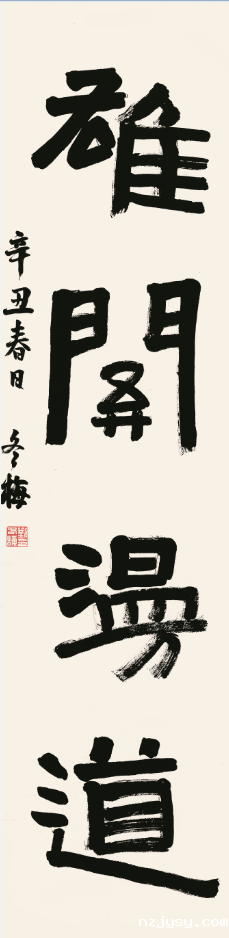 雄關漫道
辛丑春日 冬梅
nzjysy.com